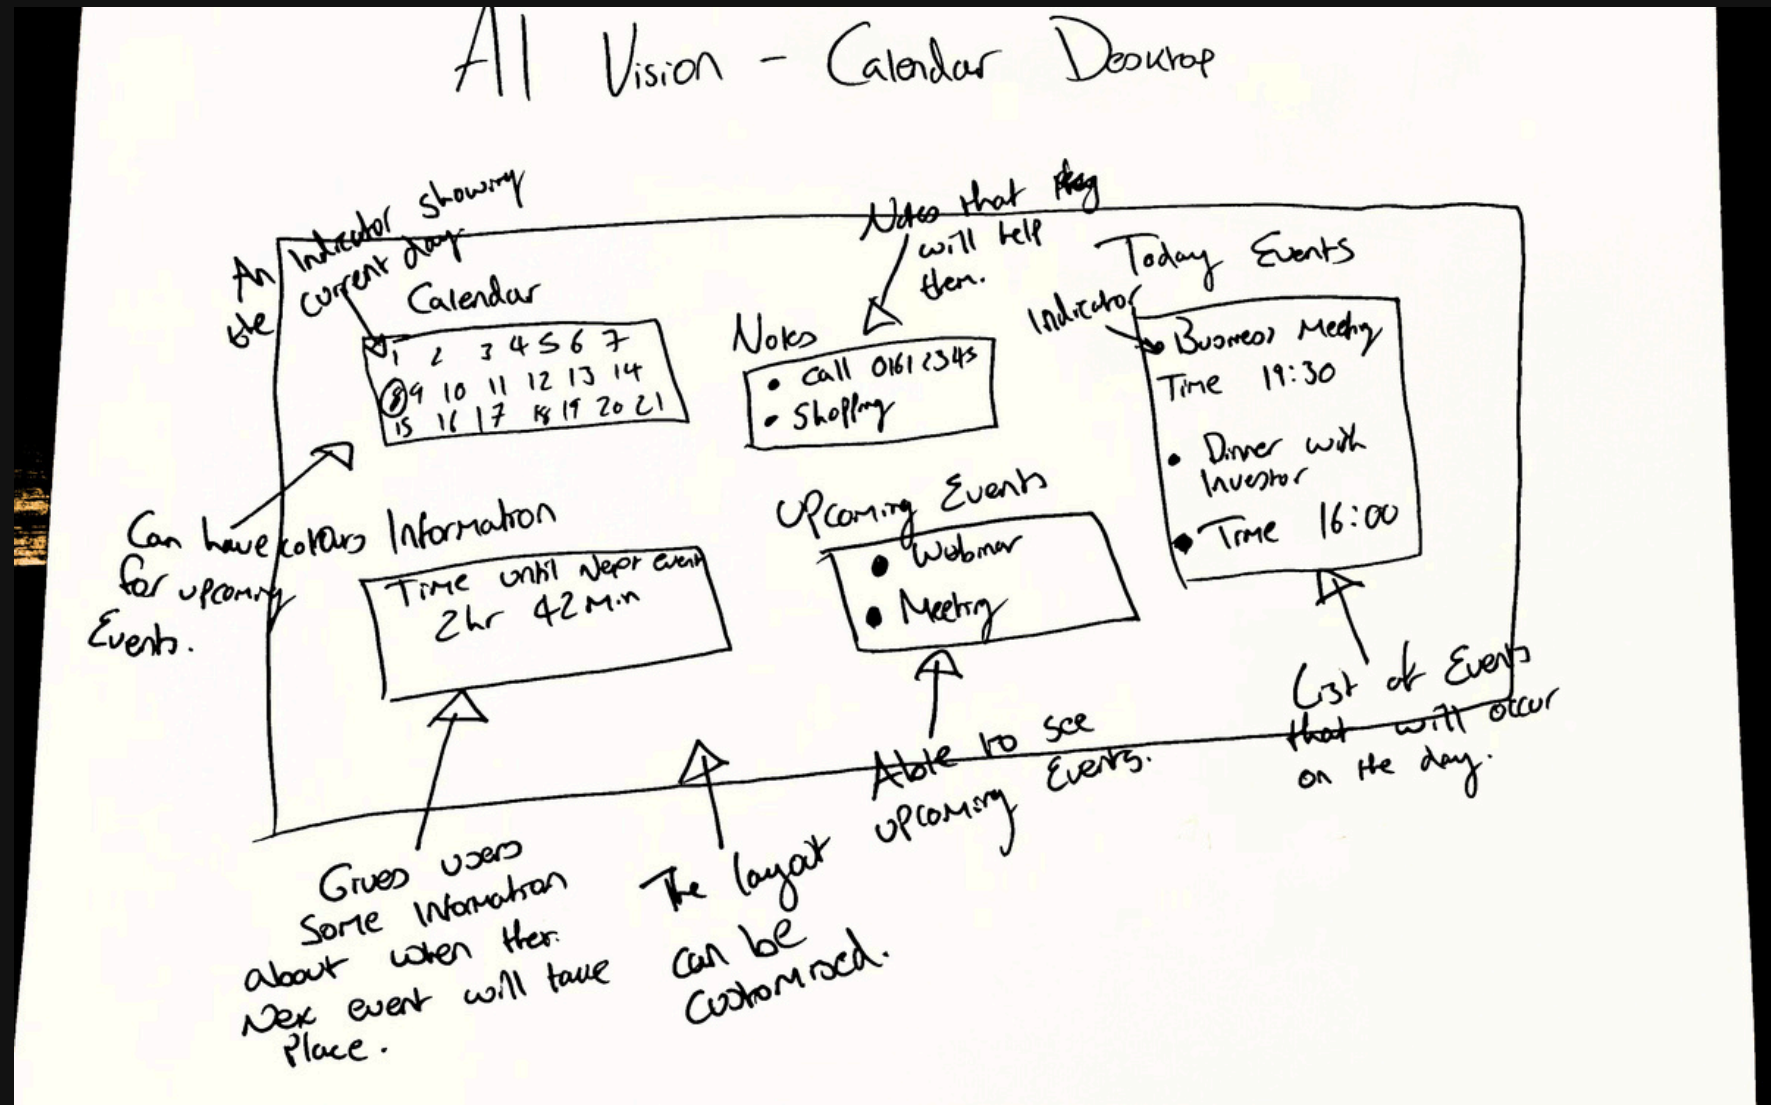 All Vision - Calendar Desktop
An Indicator showing
the current day
Calendar
1 2 3 4 5 6 7
8 9 10 11 12 13 14
15 16 17 18 19 20 21
Can have colours
for upcoming
Events.
Notes that
will help
them.
Notes
Call 0161 2345
Shopping
Today Events
Indicator
Business Meeting
Time 19:30
Dinner with
Investor
Time 16:00
Information
Time until Next event
2hr 42 Min
Upcoming Events
Webinar
Meeting
List of Events
that will occur
on the day.
Able to see
upcoming Events.
Gives users
Some Information
about when their
Nex event will take
Place.
The layout
can be
Customised.